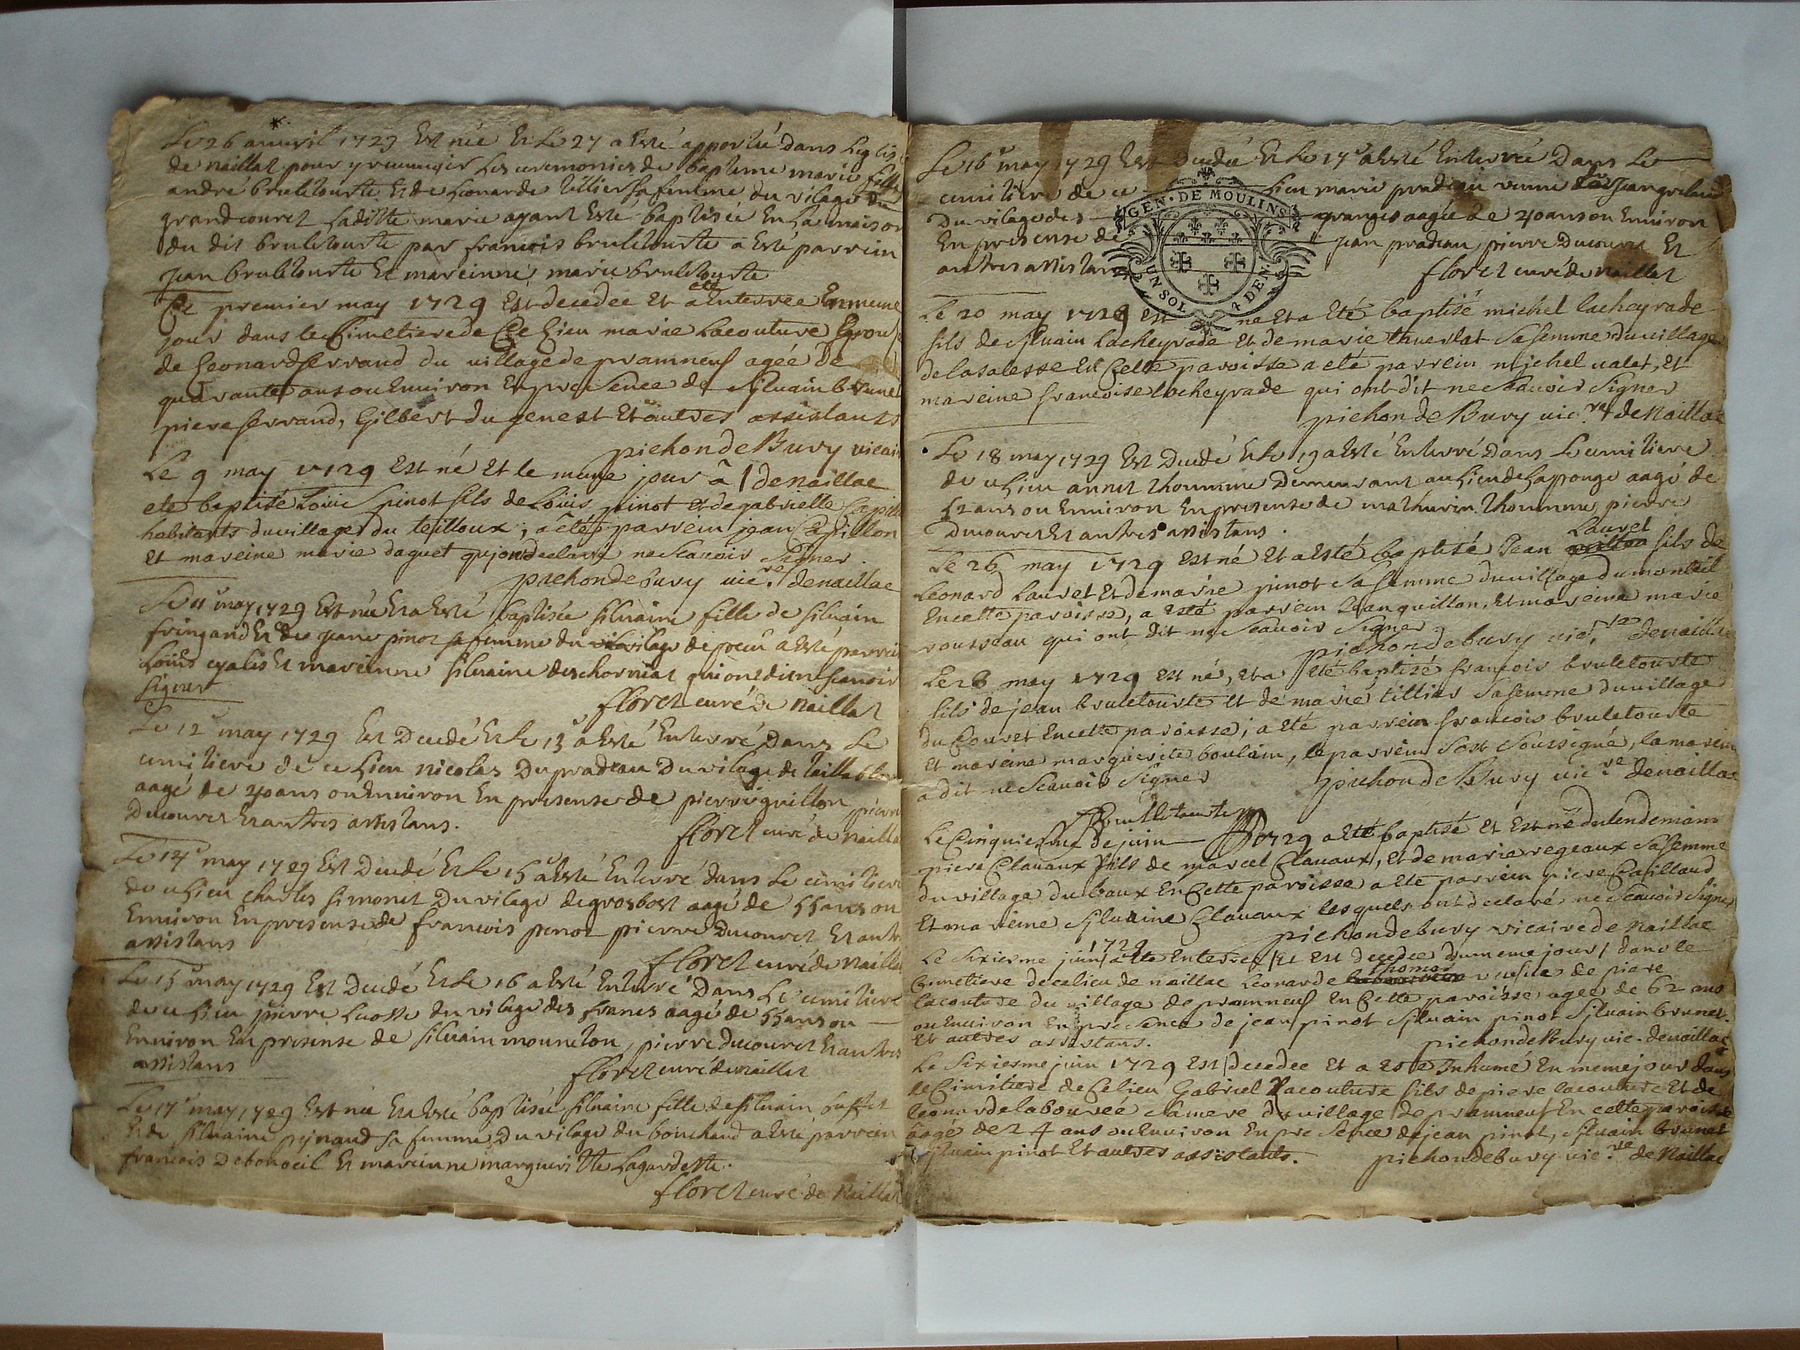 Le 26 auvril 1729 Est née Et Le 27 a Esté apporteé dans Leglise
de naillat pour y recevoir Les ceremonies de baptême marie fille
andré bruletourte Et de Leonarde tillier sa femme du vilage du
grandcouret Laditte marie ayant Esté baptisée En La maison
du dit bruletourte par francois bruletourte a Esté parrein
jean bruletourte Et mareinne marie bruletourte
Le premier may 1729 Est decedee et a eté Enterree En meme
jour dans le Cimetiere de Ce Lieu marie Lacouture Epouse
de Leonard ferrand du uillage de pramneuf agée de
quarante ans ou Enuiron En presence de Siluain brunet
piere ferrand, Gilbert du genest Et autres assistants
pichon de Bury uicaire
Le 9 may 1729 est né et le meme jour â / de naillac
eté baptisé Louis pinot fils de Louis pinot et de gabrielle
habitants du uillage du teilloux, a été parrein jean
Et mareine marie daguet qui ont declaré ne Scauoir Signer
pichon de bury uic.re de naillac
Le 11e may 1729 Est née Et a Esté baptisée siluaine fille de siluain
fringand Et de jeane pinot sa femme du vilage de a Esté parrein
Louis Et mareinne siluaine qui ont dit ne scavoir
signer
floret curé de Naillat
Le 12e may 1729 Est Decedé Et le 13e a Esté Enterré dans Le
cimitiere de ce Lieu nicolas Dupradeau Du vilage de
aagé de 40 ans ou Enuiron En presense de pierre guillon pierre
Ducouret Et autres assistans.
floret curé de Naillat
Le 14e may 1729 Est Decedé Et Le 15e a Esté Enterré dans Le cimitiere
de ce Lieu charles simonet Du vilage de grosbost aagé de 55 ans ou
Enuiron En presense de francois penot pierre Ducouret Et autres
assistans
floret curé de Naillat
Le 15e may 1729 Est Decedé Et Le 16 a Esté Enterré Dans Le cimitiere
de ce Lieu pierre du vilage des francs aagé de 55 ans ou
Enuiron En presense de siluain mourelon, pierre ducouret Et autres
assistans
floret curé de naillat
Le 17e may 1729 Est née Et a Esté baptisée siluaine fille de siluain
Et de siluaine sa femme Du vilage du bouchaud a Esté parrein
francois Debonoeil Et mareinne margueritte Lagardette.
floret curé de Naillat
Le 16e may 1729 Est Decedée Et Le 17e a Esté Enterrée Dans Le
cimitiere de ce Lieu marie pradeau veuve
Du vilage des granges aagée de 40 ans ou Enuiron
En presense de jean pradeau, pierre Ducouret Et
autres assistans
floret curé de Naillat
GEN · DE MOULINS
UN SOL 4 DEN
Le 20 may 1729 est né et a eté baptisé michel lacheyrade
fils de siluain lacheyrade et de marie thuerlat sa femme du uillage
de lasalesse En Cette paroisse a eté parrein michel ualet, et
mareine francoise lacheyrade qui ont dit ne scauoir Signer
pichon de Bury uic.re de Naillac
Le 18 may 1729 Est Decedé Et Le 19 a Esté Enterré dans Le cimitiere
de ce Lieu annet thoumine Demeurant au Lieu de Laponge aagé de
ans ou Enuiron En presense de mathurin thoumine, pierre
Ducouret Et autres assistans.
Le 26 may 1729 est né et a esté baptisé Jean Lauvet fils de
Leonard Lauvet Et de marie pinot sa femme du uillage du monteil
En cette paroisse, a esté parrein Jean guillon, Et mareine marie
rousseau qui ont dit ne Scauoir Signer
pichon de bury uic.re de naillac
Le 28 may 1729 est né, et a eté baptizé francois bruletourte
fils de jean bruletourte et de marie tillier sa femme du uillage
du Couret En cette paroisse; a eté parrein francois bruletourte
Et mareine marguerite boulain, le parrein sest Soussigné, la mareine
a dit ne Scauoir Signer
pichon de Bury uic.re de naillac
Bruletourte
Le Cinquiesme de juin 1729 a eté baptisé et est né du lendemain
piere Clauaux fils de marcel Clauaux, et de marie regeaux sa femme
du uillage du baux En Cette paroisse a eté parrein piere Caillaud
Et mareine Siluaine Clauaux lesquels ont declaré ne Scauoir Signer
pichon de bury vicaire de Naillac
Le Sixiesme juin 1729 a eté Enterree / Et est decedee du meme jour / dans le
Cimetiere de ce lieu de naillac Leonarde thomas veusue de piere
lacouture du uillage de pramneuf En Cette paroisse agee de 62 ans
ou Enuiron En presence de jean pinot Siluain pinot Siluain brunet
Et autres assistans.
pichon de Bury uic. de naillac
Le Sixiesme juin 1729 est decedee et a esté Inhumé En meme jour dans
le Cimitiere de Ce lieu Gabriel Lacouture fils de piere lacouture Et de
Leonarde labourée sa mere du uillage de pramneuf En cette paroisse
aagé de 24 ans ou Enuiron En presence de jean pinot, siluain brunet
siluain pinot Et autres assistants.
pichon de bury uic.re de Naillac